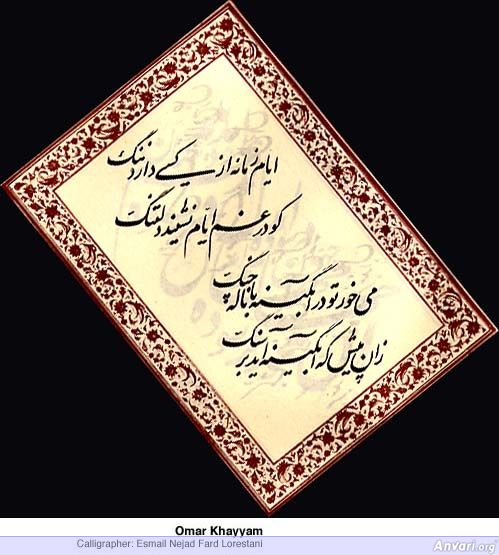 ایام زمانه از کسی دارد ننگ
کو در غم ایام نشیند دلتنگ
می خور تو در آبگینه با ناله چنگ
زان پیش که آبگینه آید بر سنگ
Omar Khayyam
Calligrapher: Esmail Nejad Fard Lorestani
Anvari.org